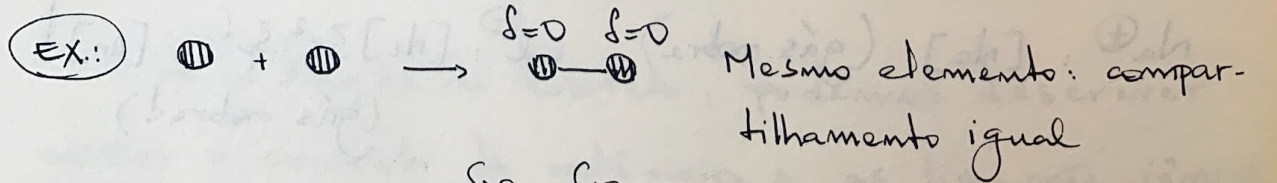 δ=0 δ=0
EX.: + → Mesmo elemento: compar-
tilhamento igual